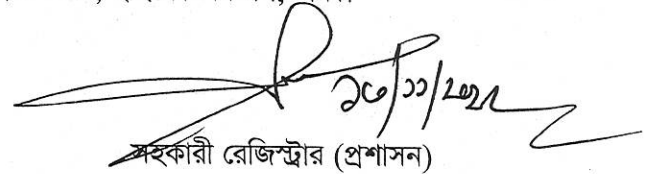 ১৩/১১/২০২২
সহকারী রেজিস্ট্রার (প্রশাসন)